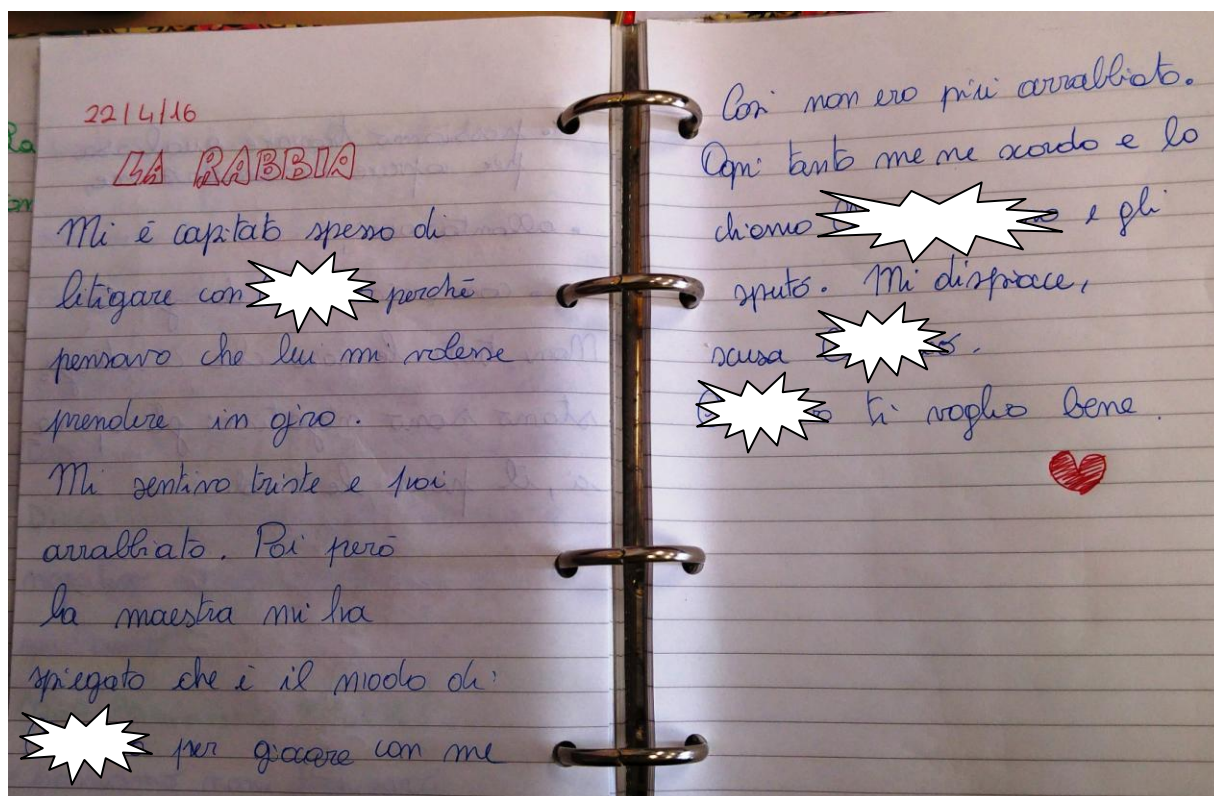 22/4/16
LA RABBIA
Mi è capitato spesso di
litigare con perché
pensavo che lui mi volesse
prendere in giro.
Mi sentivo triste e poi
arrabbiato. Poi però
la maestra mi ha
spiegato che è il modo di
per giocare con me
Così non ero più arrabbiato.
Ogni tanto me ne scordo e lo
chiamo e gli
sputo. Mi dispiace,
scusa .
ti voglio bene.